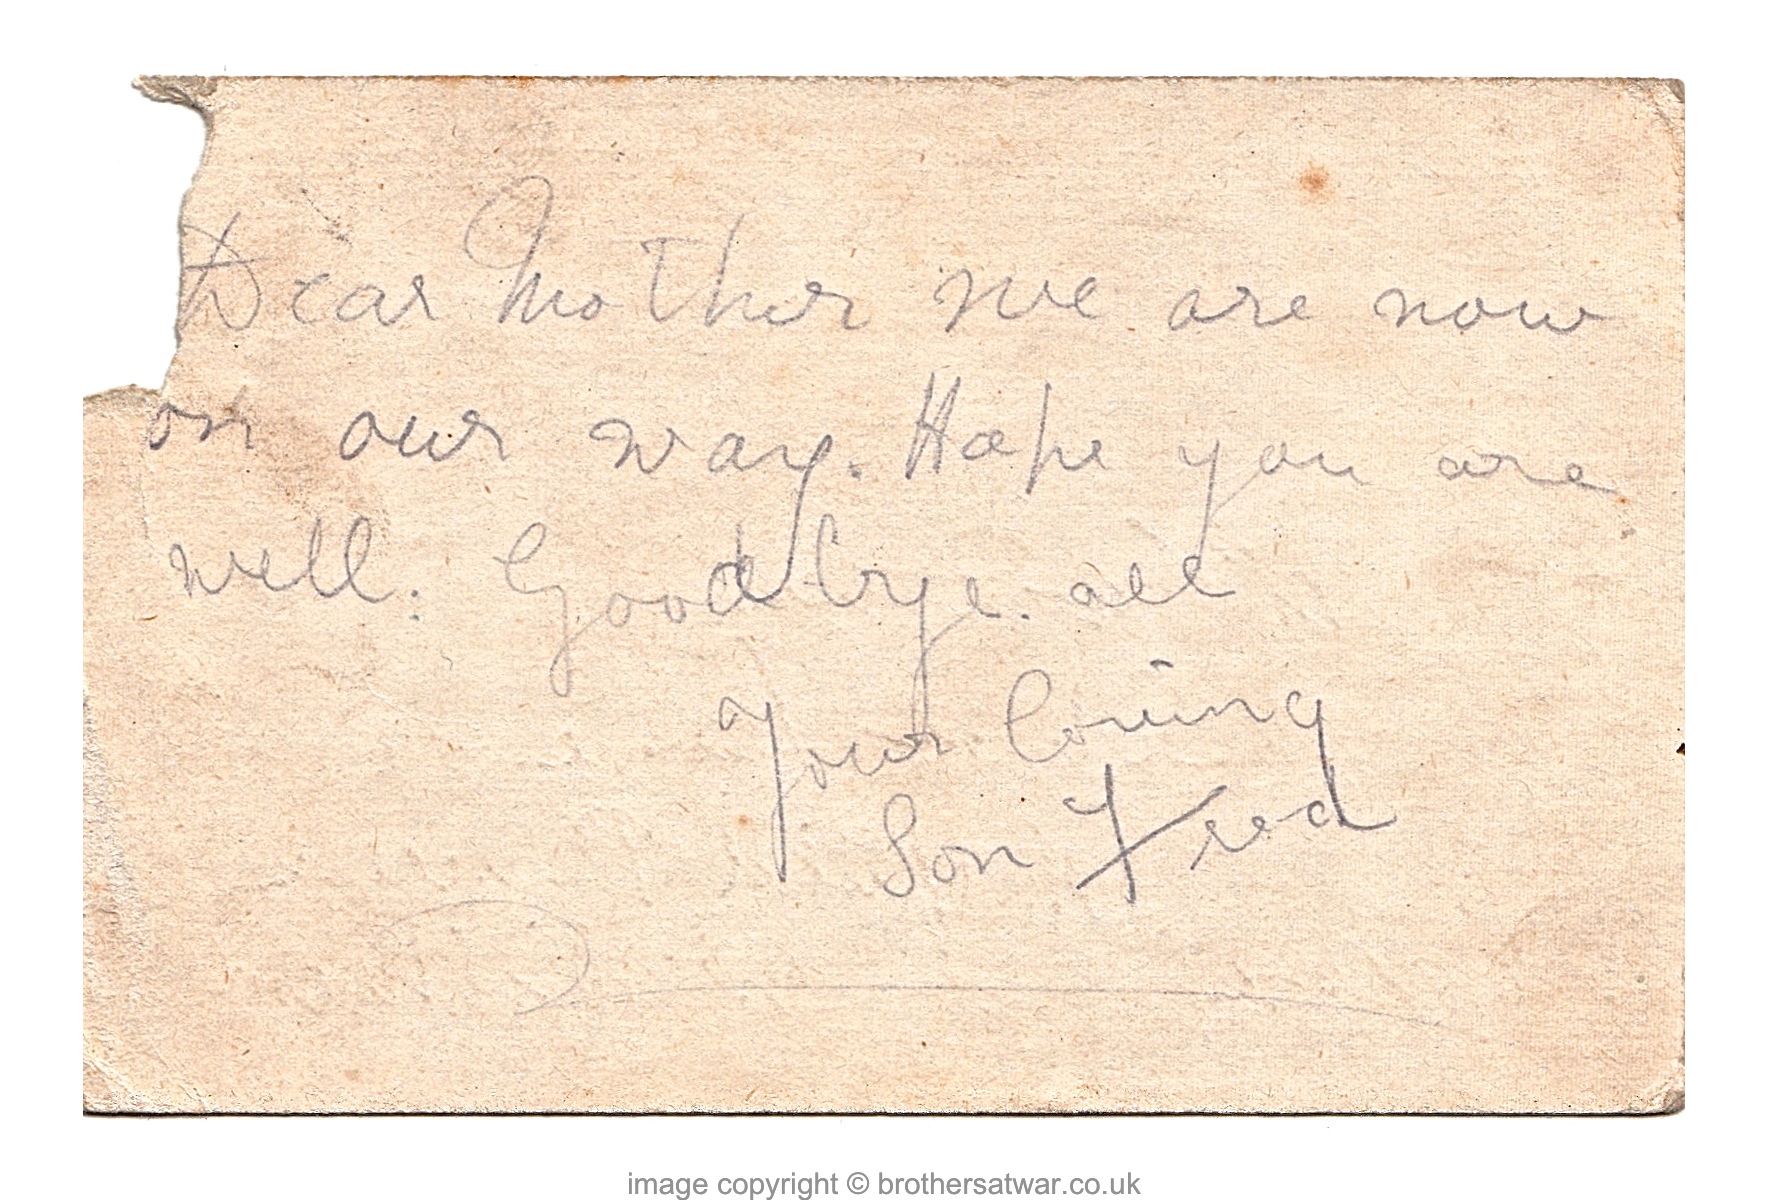 Dear Mother we are now
on our way. Hope you are
well. Goodbye. all
Your loving
Son Fred
image copyright © brothersatwar.co.uk